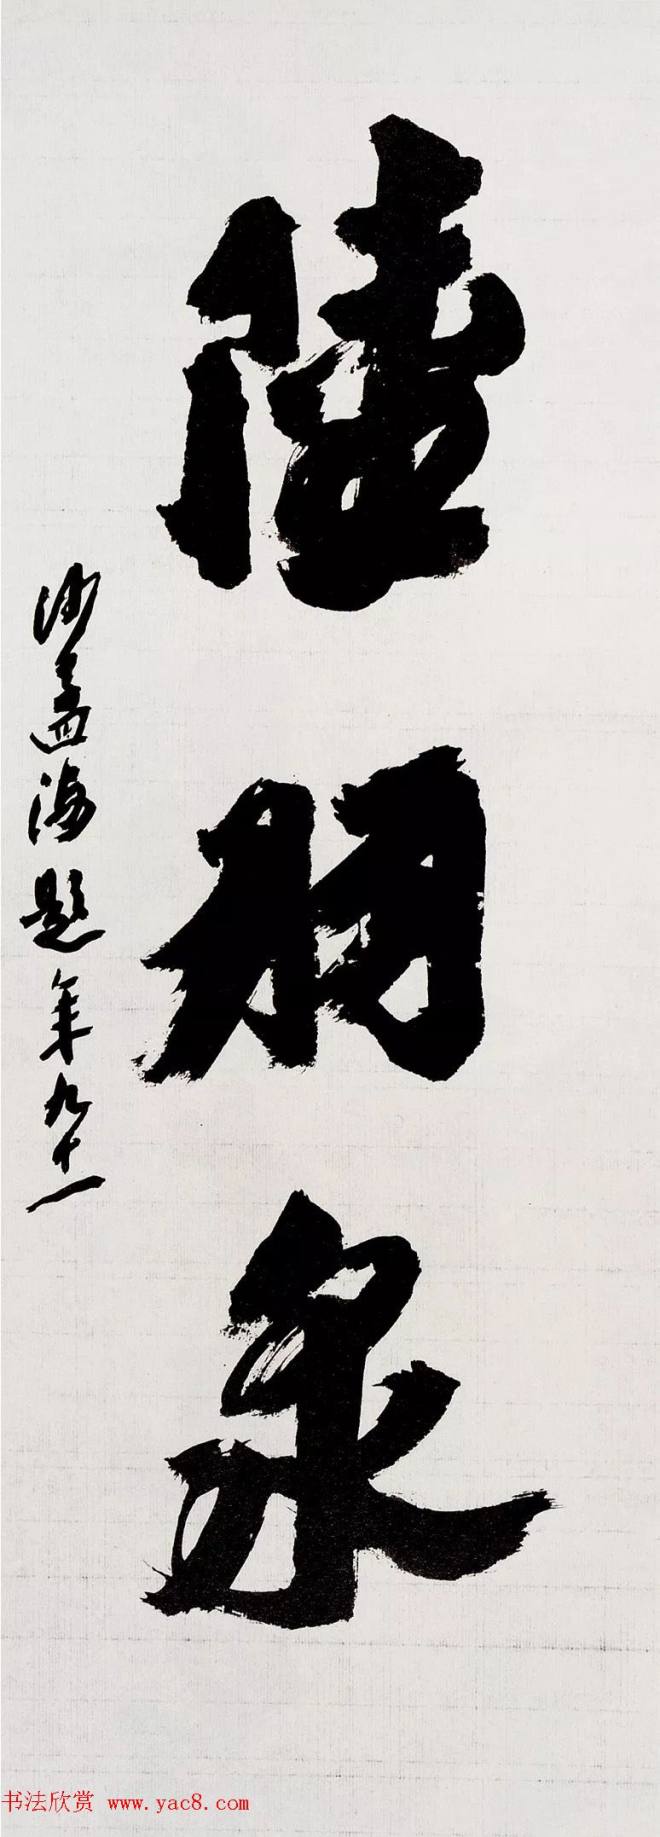 陸羽泉
沙孟海題年九十一
书法欣赏 www.yac8.com